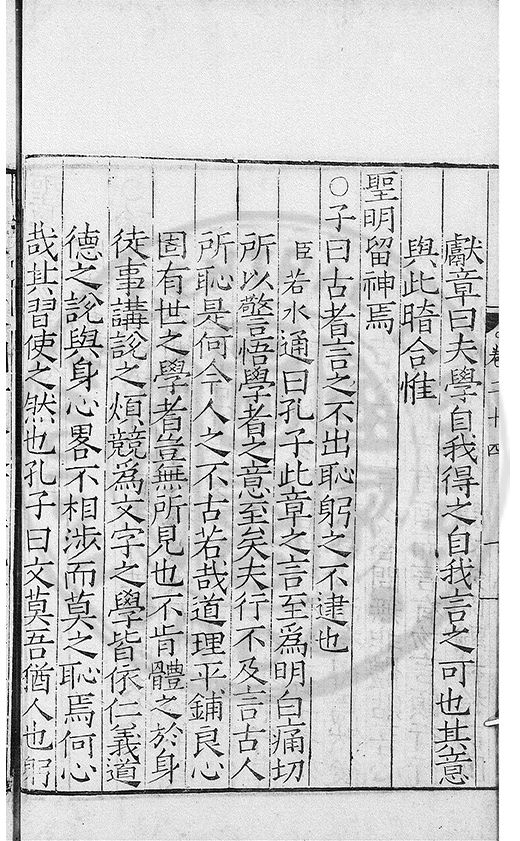 獻章曰夫學自我得之自我言之可也其意
與此暗合惟
聖明留神焉
○子曰古者言之不出恥躬之不逮也
臣若水通曰孔子此章之言至爲明白痛切
所以警悟學者之意至矣夫行不及言古人
所恥是何今人之不古若哉道理平鋪良心
固有世之學者豈無所見也不肯體之於身
徒事講說之煩競爲文字之學皆依仁義道
德之說與身心畧不相涉而莫之恥焉何心
哉其習使之然也孔子曰文莫吾猶人也躬
卷二十四